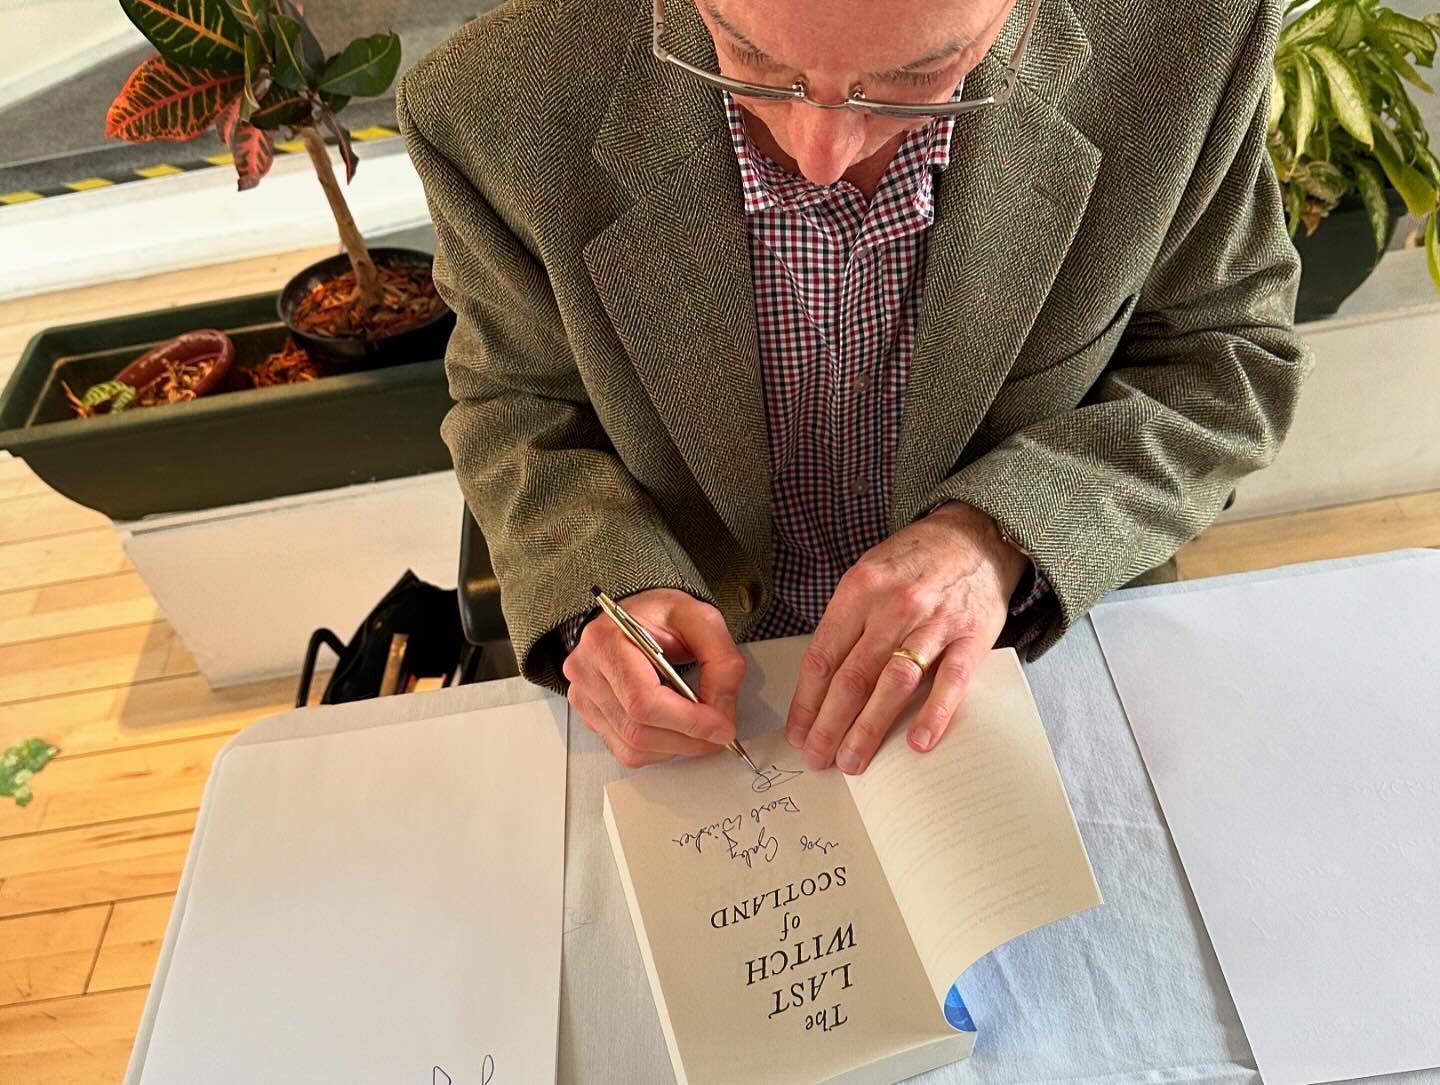 The
LAST
WITCH
of
SCOTLAND
Gaby
Best Wishes